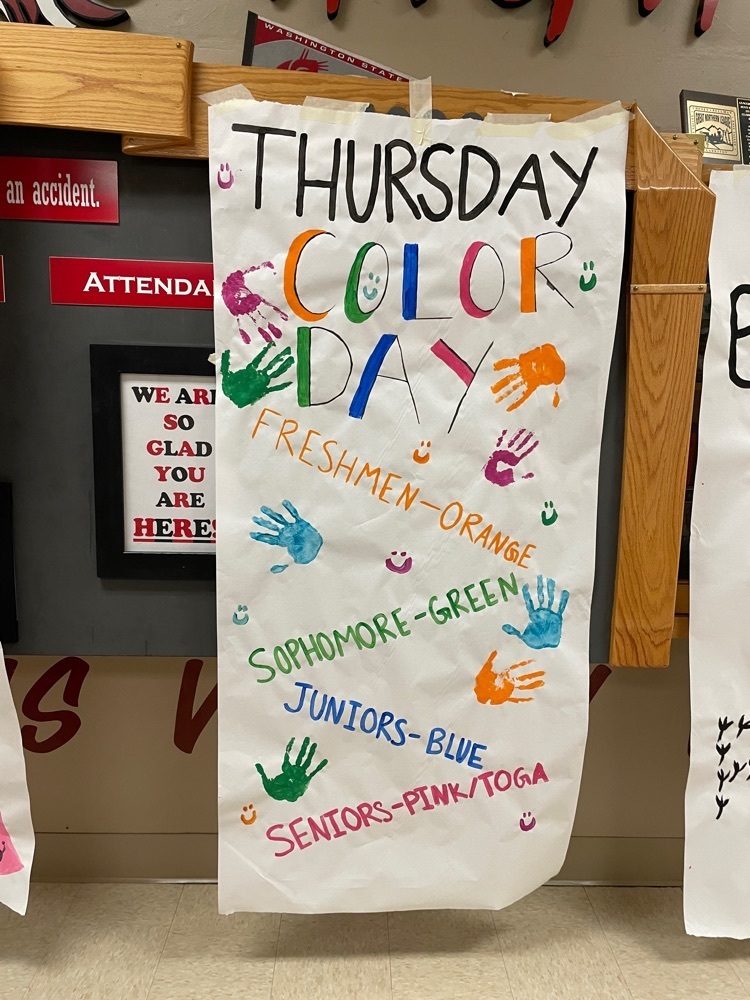 WASHINGTON STATE
GREAT NORTHERN LEAGUE
THURSDAY
an accident.
COLOR
ATTENDA
DAY
WE ARE
SO
GLAD
YOU
ARE
HERE!
FRESHMEN-ORANGE
SOPHOMORE-GREEN
JUNIORS-BLUE
SENIORS-PINK/TOGA